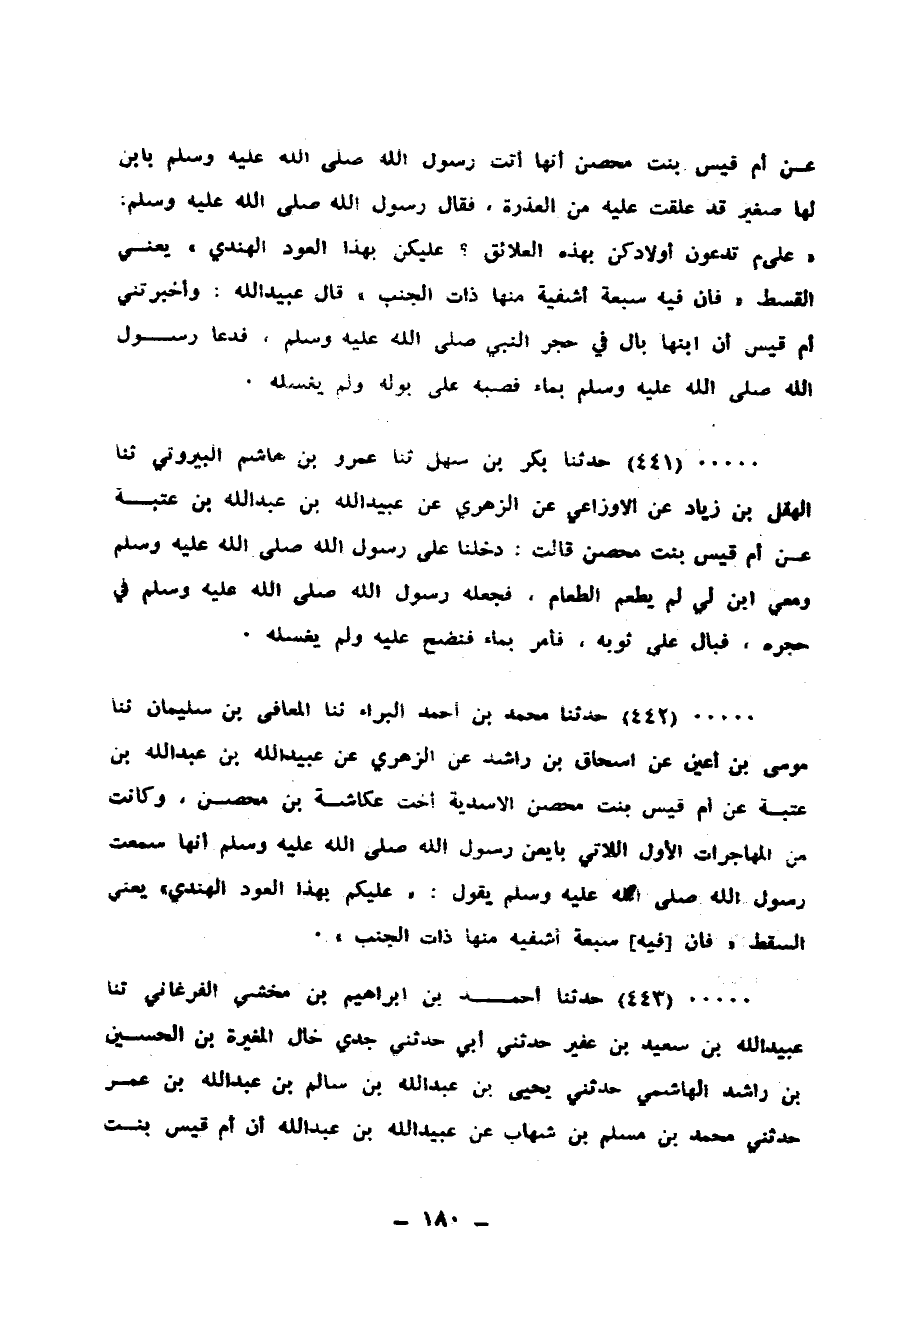 عـن أم قيس بنت محصن أنها أتت رسول الله صلى الله عليه وسلم بابن
لها صغير قد علقت عليه من العذرة ، فقال رسول الله صلى الله عليه وسلم:
« على م تدعون أولادكن بهذه العلائق ؟ عليكن بهذا العود الهندي » يعنـي
القسط « فان فيه سبعة أشفية منها ذات الجنب » قال عبيدالله : وأخبرتني
أم قيس أن ابنها بال في حجر النبي صلى الله عليه وسلم ، فدعا رسـول
الله صلى الله عليه وسلم بماء فصبه على بوله ولم يغسله ٠
٠٠٠٠٠ (٤٤١) حدثنا بكر بن سهل ثنا عمرو بن هاشم البيروتي ثنا
الهقل بن زياد عن الاوزاعي عن الزهري عن عبيدالله بن عبدالله بن عتبـة
عـن أم قيس بنت محصن قالت : دخلنا على رسول الله صلى الله عليه وسلم
ومعي ابن لي لم يطعم الطعام ، فجعله رسول الله صلى الله عليه وسلم في
حجره ، فبال على ثوبه ، فأمر بماء فنضح عليه ولم يغسله ٠
٠٠٠٠٠ (٤٤٢) حدثنا محمد بن أحمد البراء ثنا المعافى بن سليمان ثنا
موسى بن أعين عن اسحاق بن راشد عن الزهري عن عبيدالله بن عبدالله بن
عتبـة عن أم قيس بنت محصن الاسدية أخت عكاشـة بن محصـن ، وكانت
من المهاجرات الأول اللاتي بايعن رسول الله صلى الله عليه وسلم أنها سمعت
رسول الله صلى الله عليه وسلم يقول : « عليكم بهذا العود الهندي» يعني
السقط « فان [فيه] سبعة أشفيه منها ذات الجنب » ٠
٠٠٠٠٠ (٤٤٣) حدثنا أحمـــد بن ابراهيم بن مخشي الفرغاني ثنا
عبيدالله بن سعيد بن عفير حدثني أبي حدثني جدي خال المغيرة بن الحسـين
بن راشد الهاشمي حدثني يحيى بن عبدالله بن سالم بن عبدالله بن عمـر
حدثني محمد بن مسلم بن شهاب عن عبيدالله بن عبدالله أن أم قيس بنـت
ـ ١٨٠ ـ